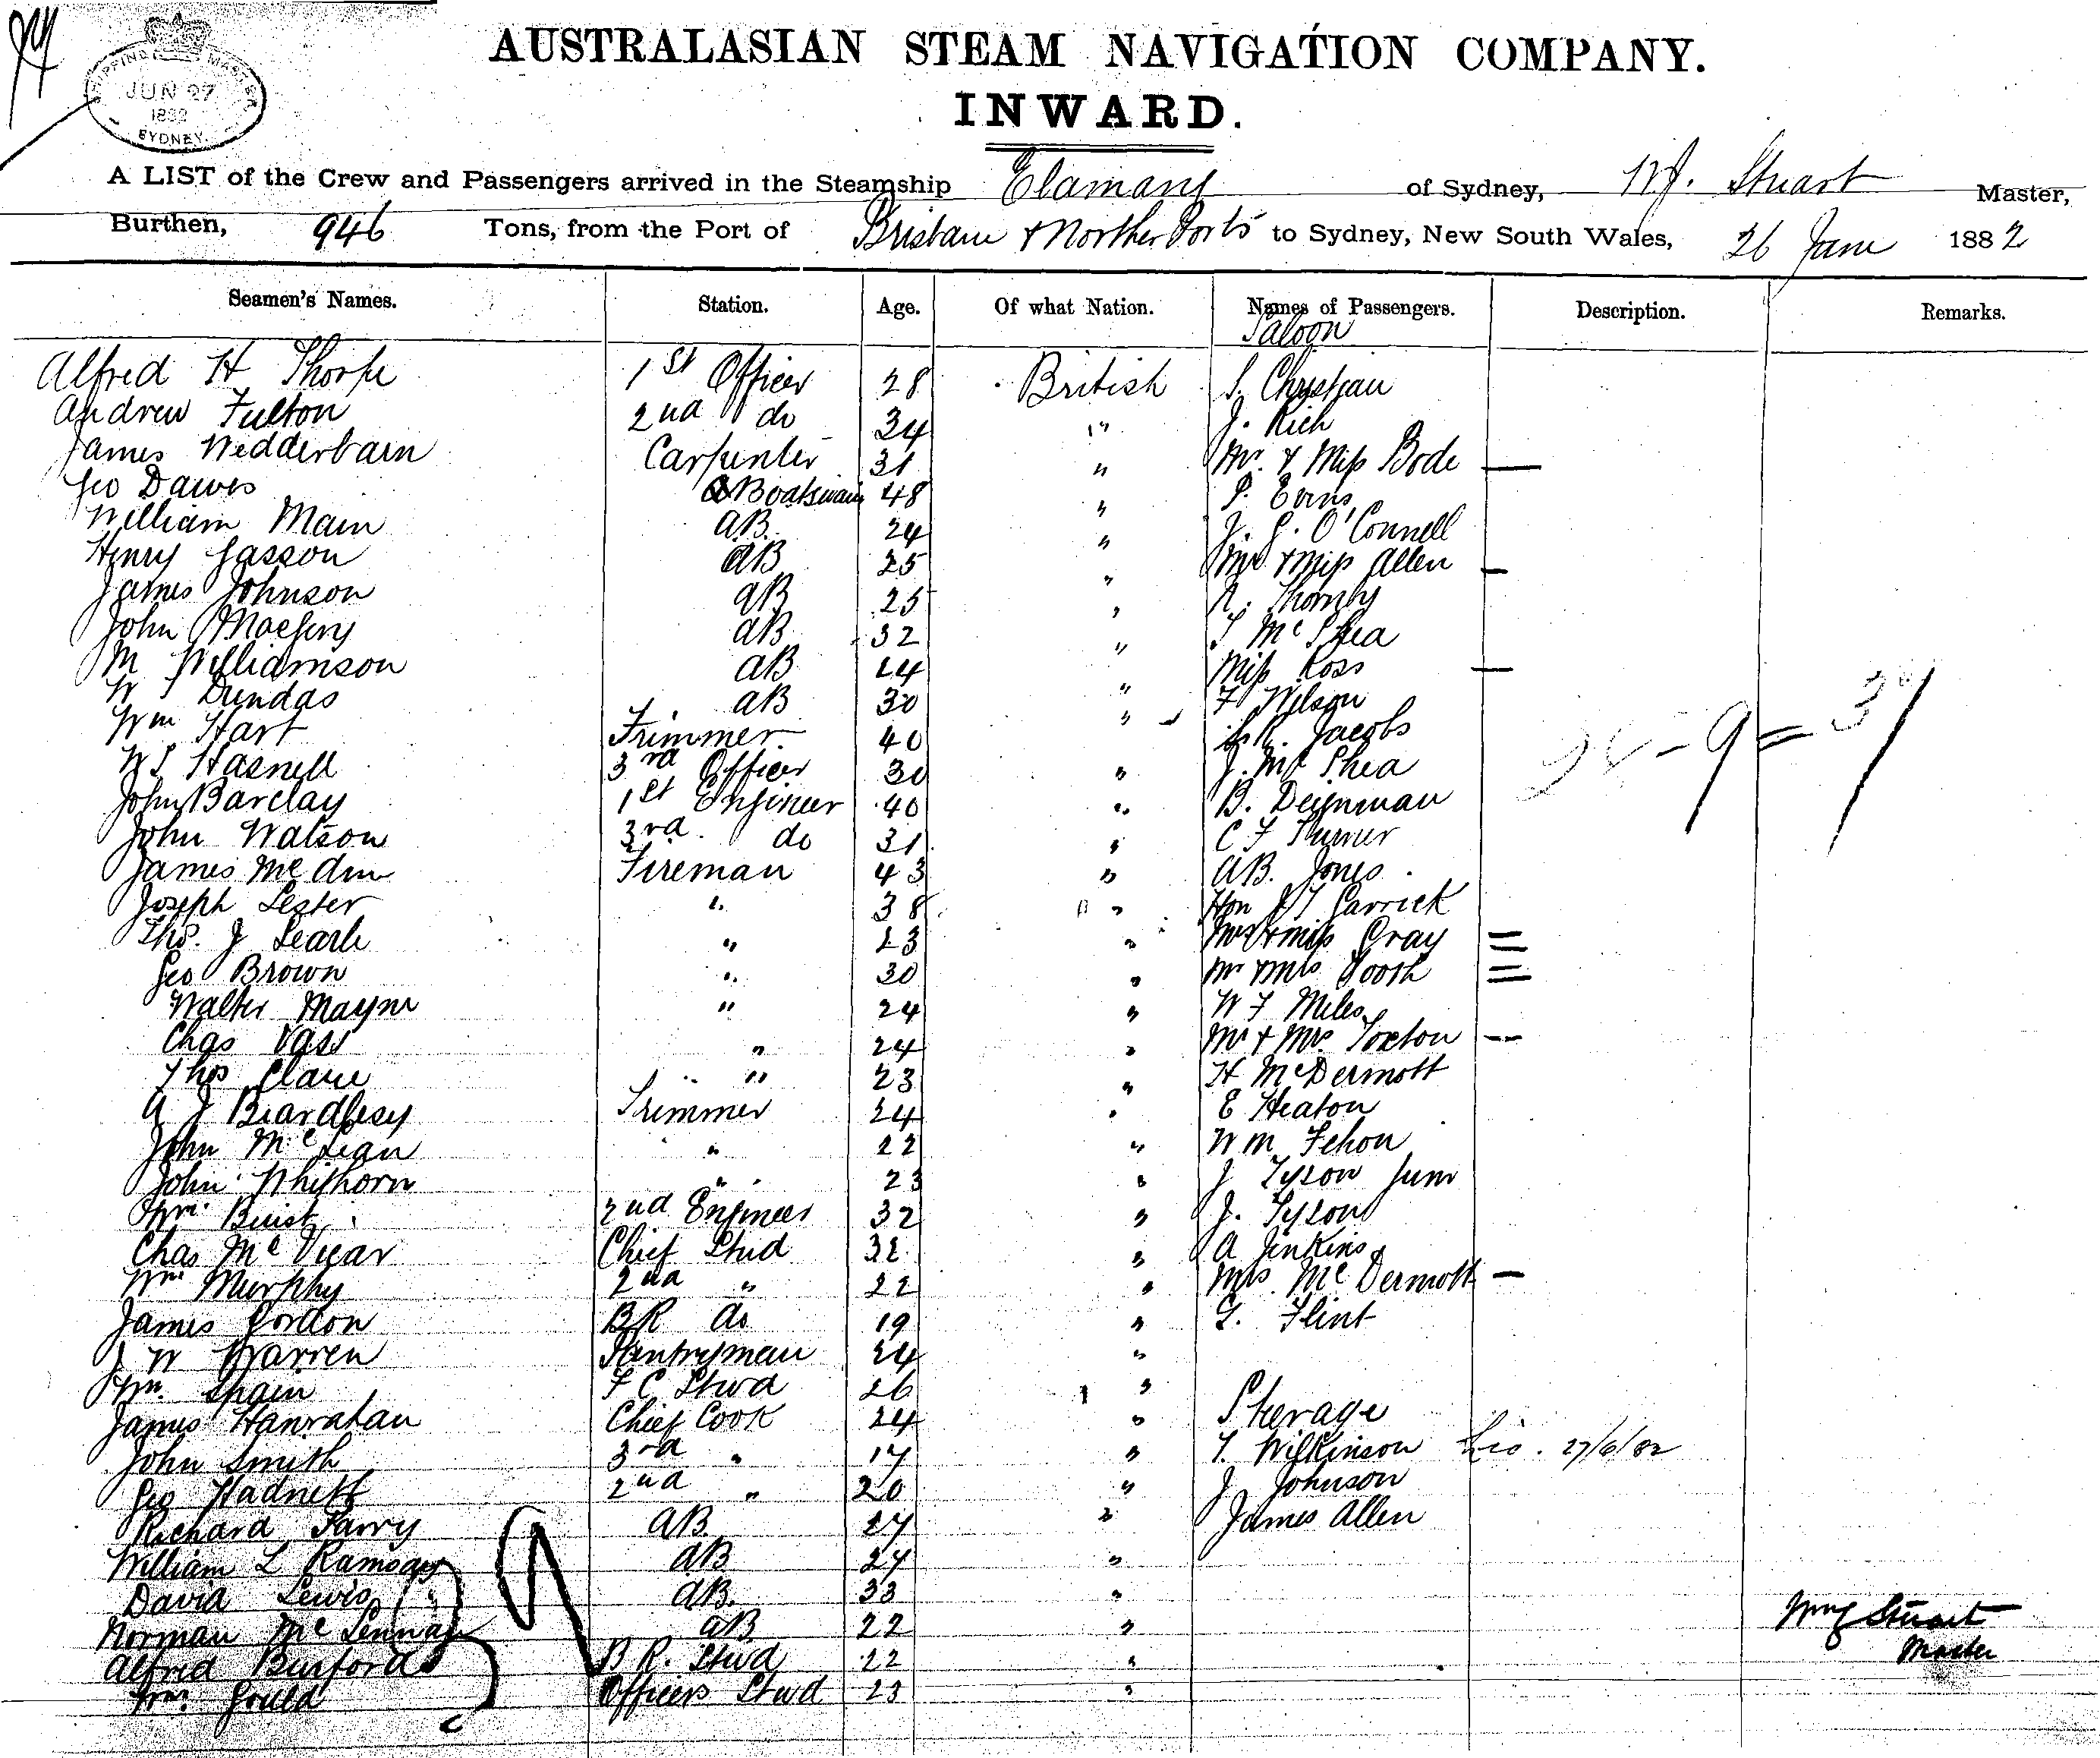 SHIPPING MASTER
JUN 27
1882
SYDNEY
AUSTRALASIAN STEAM NAVIGATION COMPANY.
INWARD.
A LIST of the Crew and Passengers arrived in the Steamship Elamang of Sydney, W J. Stuart Master,
Burthen, 946 Tons, from the Port of Brisbane & Norther Ports to Sydney, New South Wales, 26 June 1882
Seamen's Names. Station. Age. Of what Nation. Names of Passengers. Description. Remarks.
Saloon
Alfred H Thorpe 1st Officer 28 British S. Christian
Andrew Fulton 2nd do 34 " J. Rich
James Wedderbarn Carpenter 31 " Mr. & Miss Bode
Geo Dawes Boatswain 48 "
William Main AB. 24 " J. G. O'Connell
Henry Gasson AB 25 " & Miss Allen
James Johnson AB 25 " Thornby
John AB 32 " T McShea
M Williamson AB 24 " Miss Ross
W Dundas AB 30 " F Wilson
Wm Hart Trimmer 40 " Jacobs
W S Hasnell 3rd Officer 30 " J. McShea
John Barclay 1st Engineer 40 " B. Deynman
John Watson 3rd do 31 " C F Turner
James Fireman 43 " AB. Jones
Joseph Lester " 38 " Hon Garrick
Thos. J Searle " 23 " & Miss Gray
Geo Brown " 30 " Mr & Mrs
Walter Mayne " 24 " W F Miles
Chas Vass " 24 " Mr & Mrs. Loxton
Thos Clare " 23 " H McDermott
A J Beardlsey Trimmer 24 " E Heaton
John McLean " 22 " Wm Fehon
John Whithorn " 23 " J Tyson Junr
Wm. Buist 2nd Engineer 32 " J. Tyson
Chas McVicar Chief Stud 32 " A Jenkins
Wm Murphy 2nd " 22 " Mrs. McDermott
James Gordon BR do 19 " G. Flint
J W Warren Pantryman 24 "
Wm. Spain F C Stwd 26 "
James Hanrahan Chief Cook 24 " Steerage
John Smith 3rd " 17 " T. Wilkinson 27/6/82
Geo Hadnett 2nd " 20 " J Johnson
Richard Parry AB. 27 " James Allen
William L Ramsay AB 27 "
David Lewis AB. 33 "
Norman McLennan AB 22 "
Alfred Burford B R. Stwd 22 "
Wm. Gould Officers Stwd 23 "
9
- 9 = 
Wm J Stuart
Master